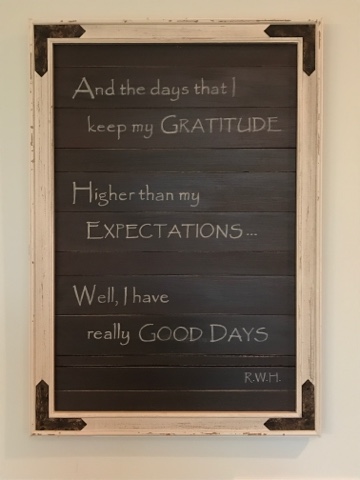 And the days that I
keep my GRATITUDE
Higher than my
EXPECTATIONS...
Well, I have
really GOOD DAYS
R.W.H.